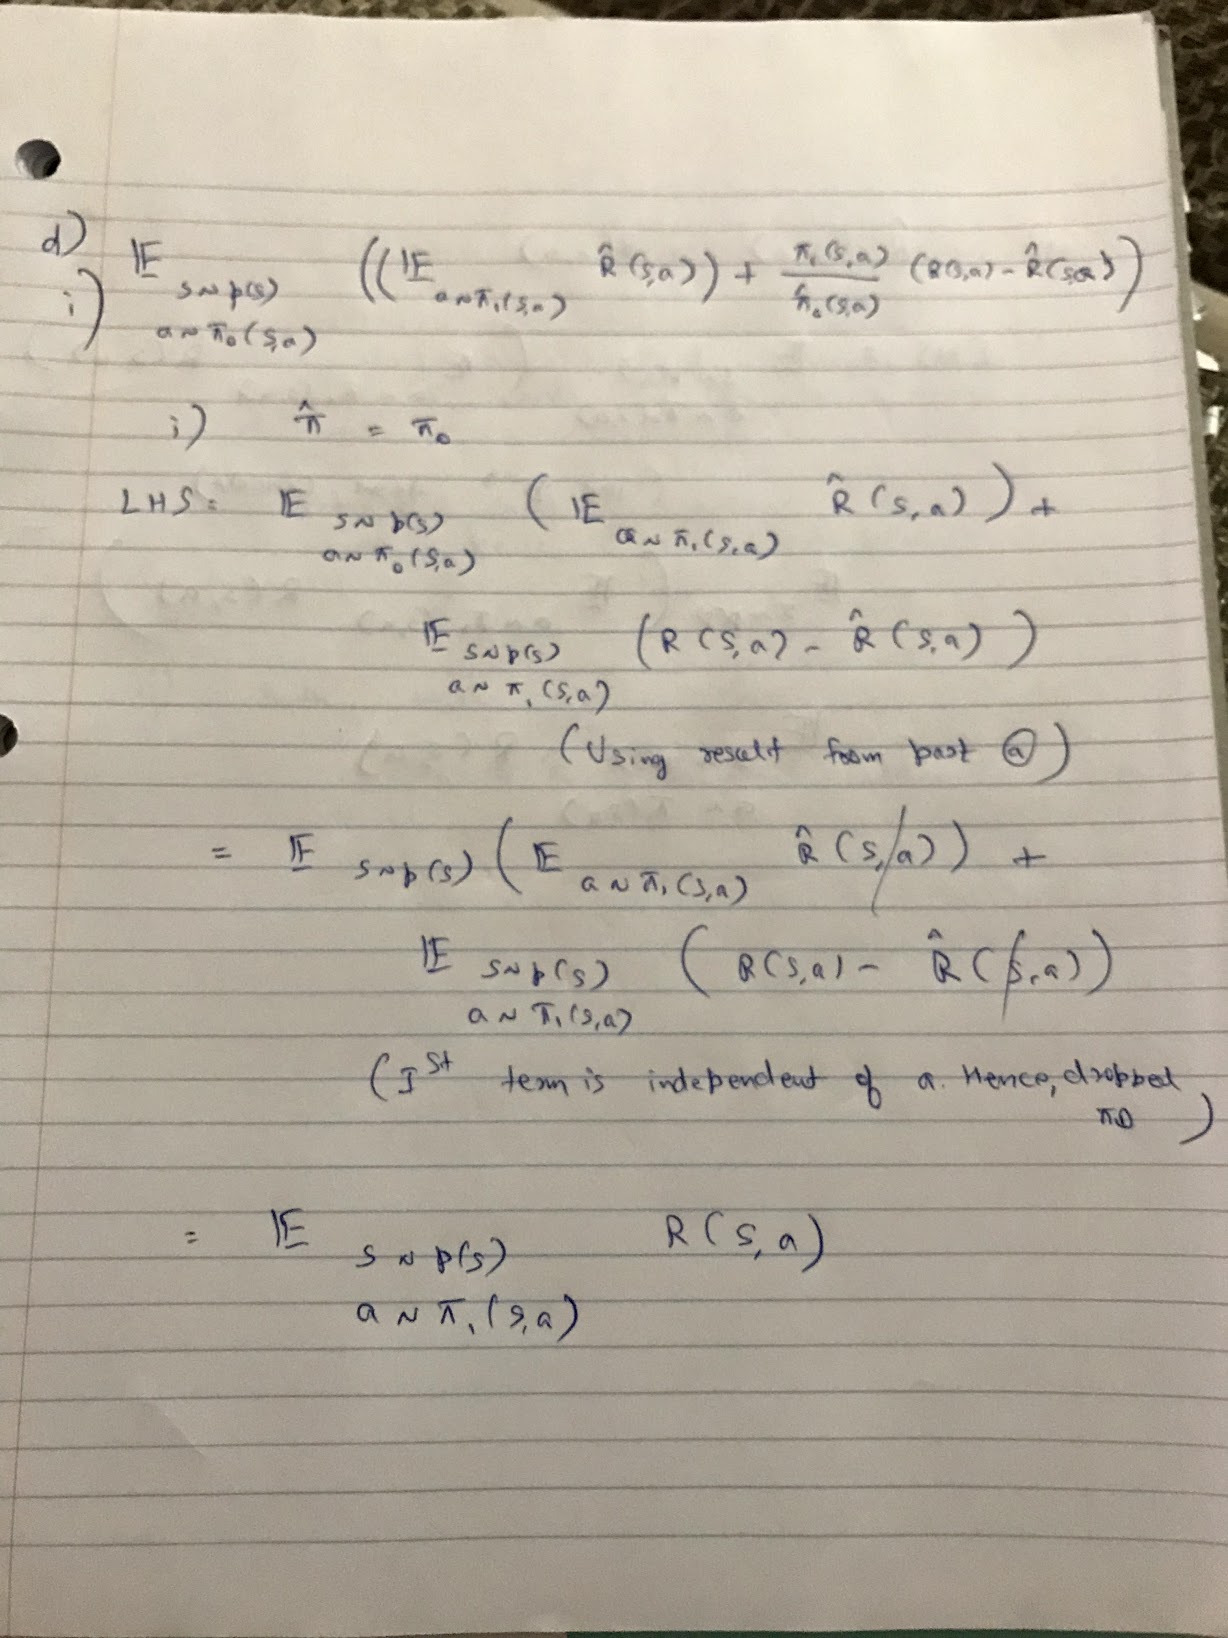 d)
i) 𝔼 s~p(s) a~π₀(s,a) ((𝔼 a~π₁(s,a) R̂(s,a)) + π₁(s,a) / π̂₀(s,a) (R(s,a) - R̂(s,a)))
i) π̂ = π₀
LHS = 𝔼 s~p(s) a~π₀(s,a) (𝔼 a~π₁(s,a) R̂(s,a)) +
𝔼 s~p(s) a~π₁(s,a) (R(s,a) - R̂(s,a))
(Using result from part ⓐ)
= 𝔼 s~p(s) (𝔼 a~π₁(s,a) R̂(s,a)) +
𝔼 s~p(s) a~π₁(s,a) (R(s,a) - R̂(s,a))
(Iˢᵗ term is independent of a. Hence, dropped
π0)
= 𝔼 s~p(s) a~π₁(s,a) R(s,a)